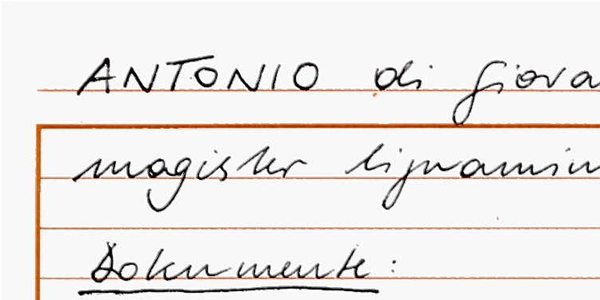 ANTONIO di Giova
magister lignamin
Dokumente: